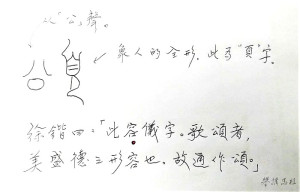 从"公"聲
象人的全形，此即"頁"字
徐鍇曰：「此容儀字。歌頌者，
美盛德之形容也，故通作頌。」